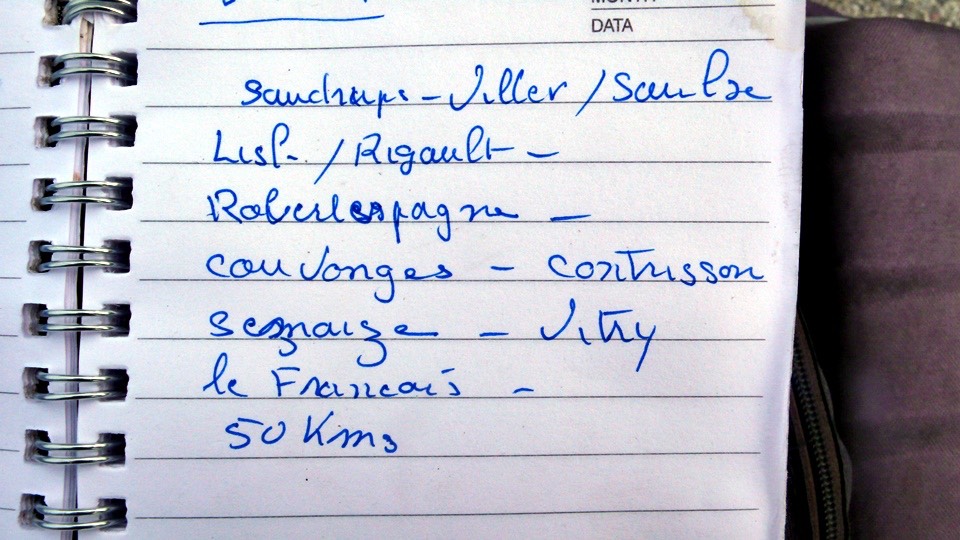 DATA
Saudrupt - Viller / Saulxe
Lisl. / Rigault -
Robertespagne -
couvonges - contrisson
sermaize - Vitry
le Francais -
50 Kms